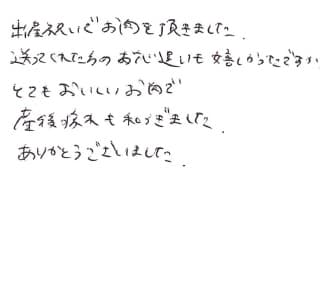 出産祝いでお肉を頂きました.
送ってくれた方のお心遣いも嬉しかったですが
とてもおいしいお肉で
産後疲れも和らぎました.
ありがとうございました.